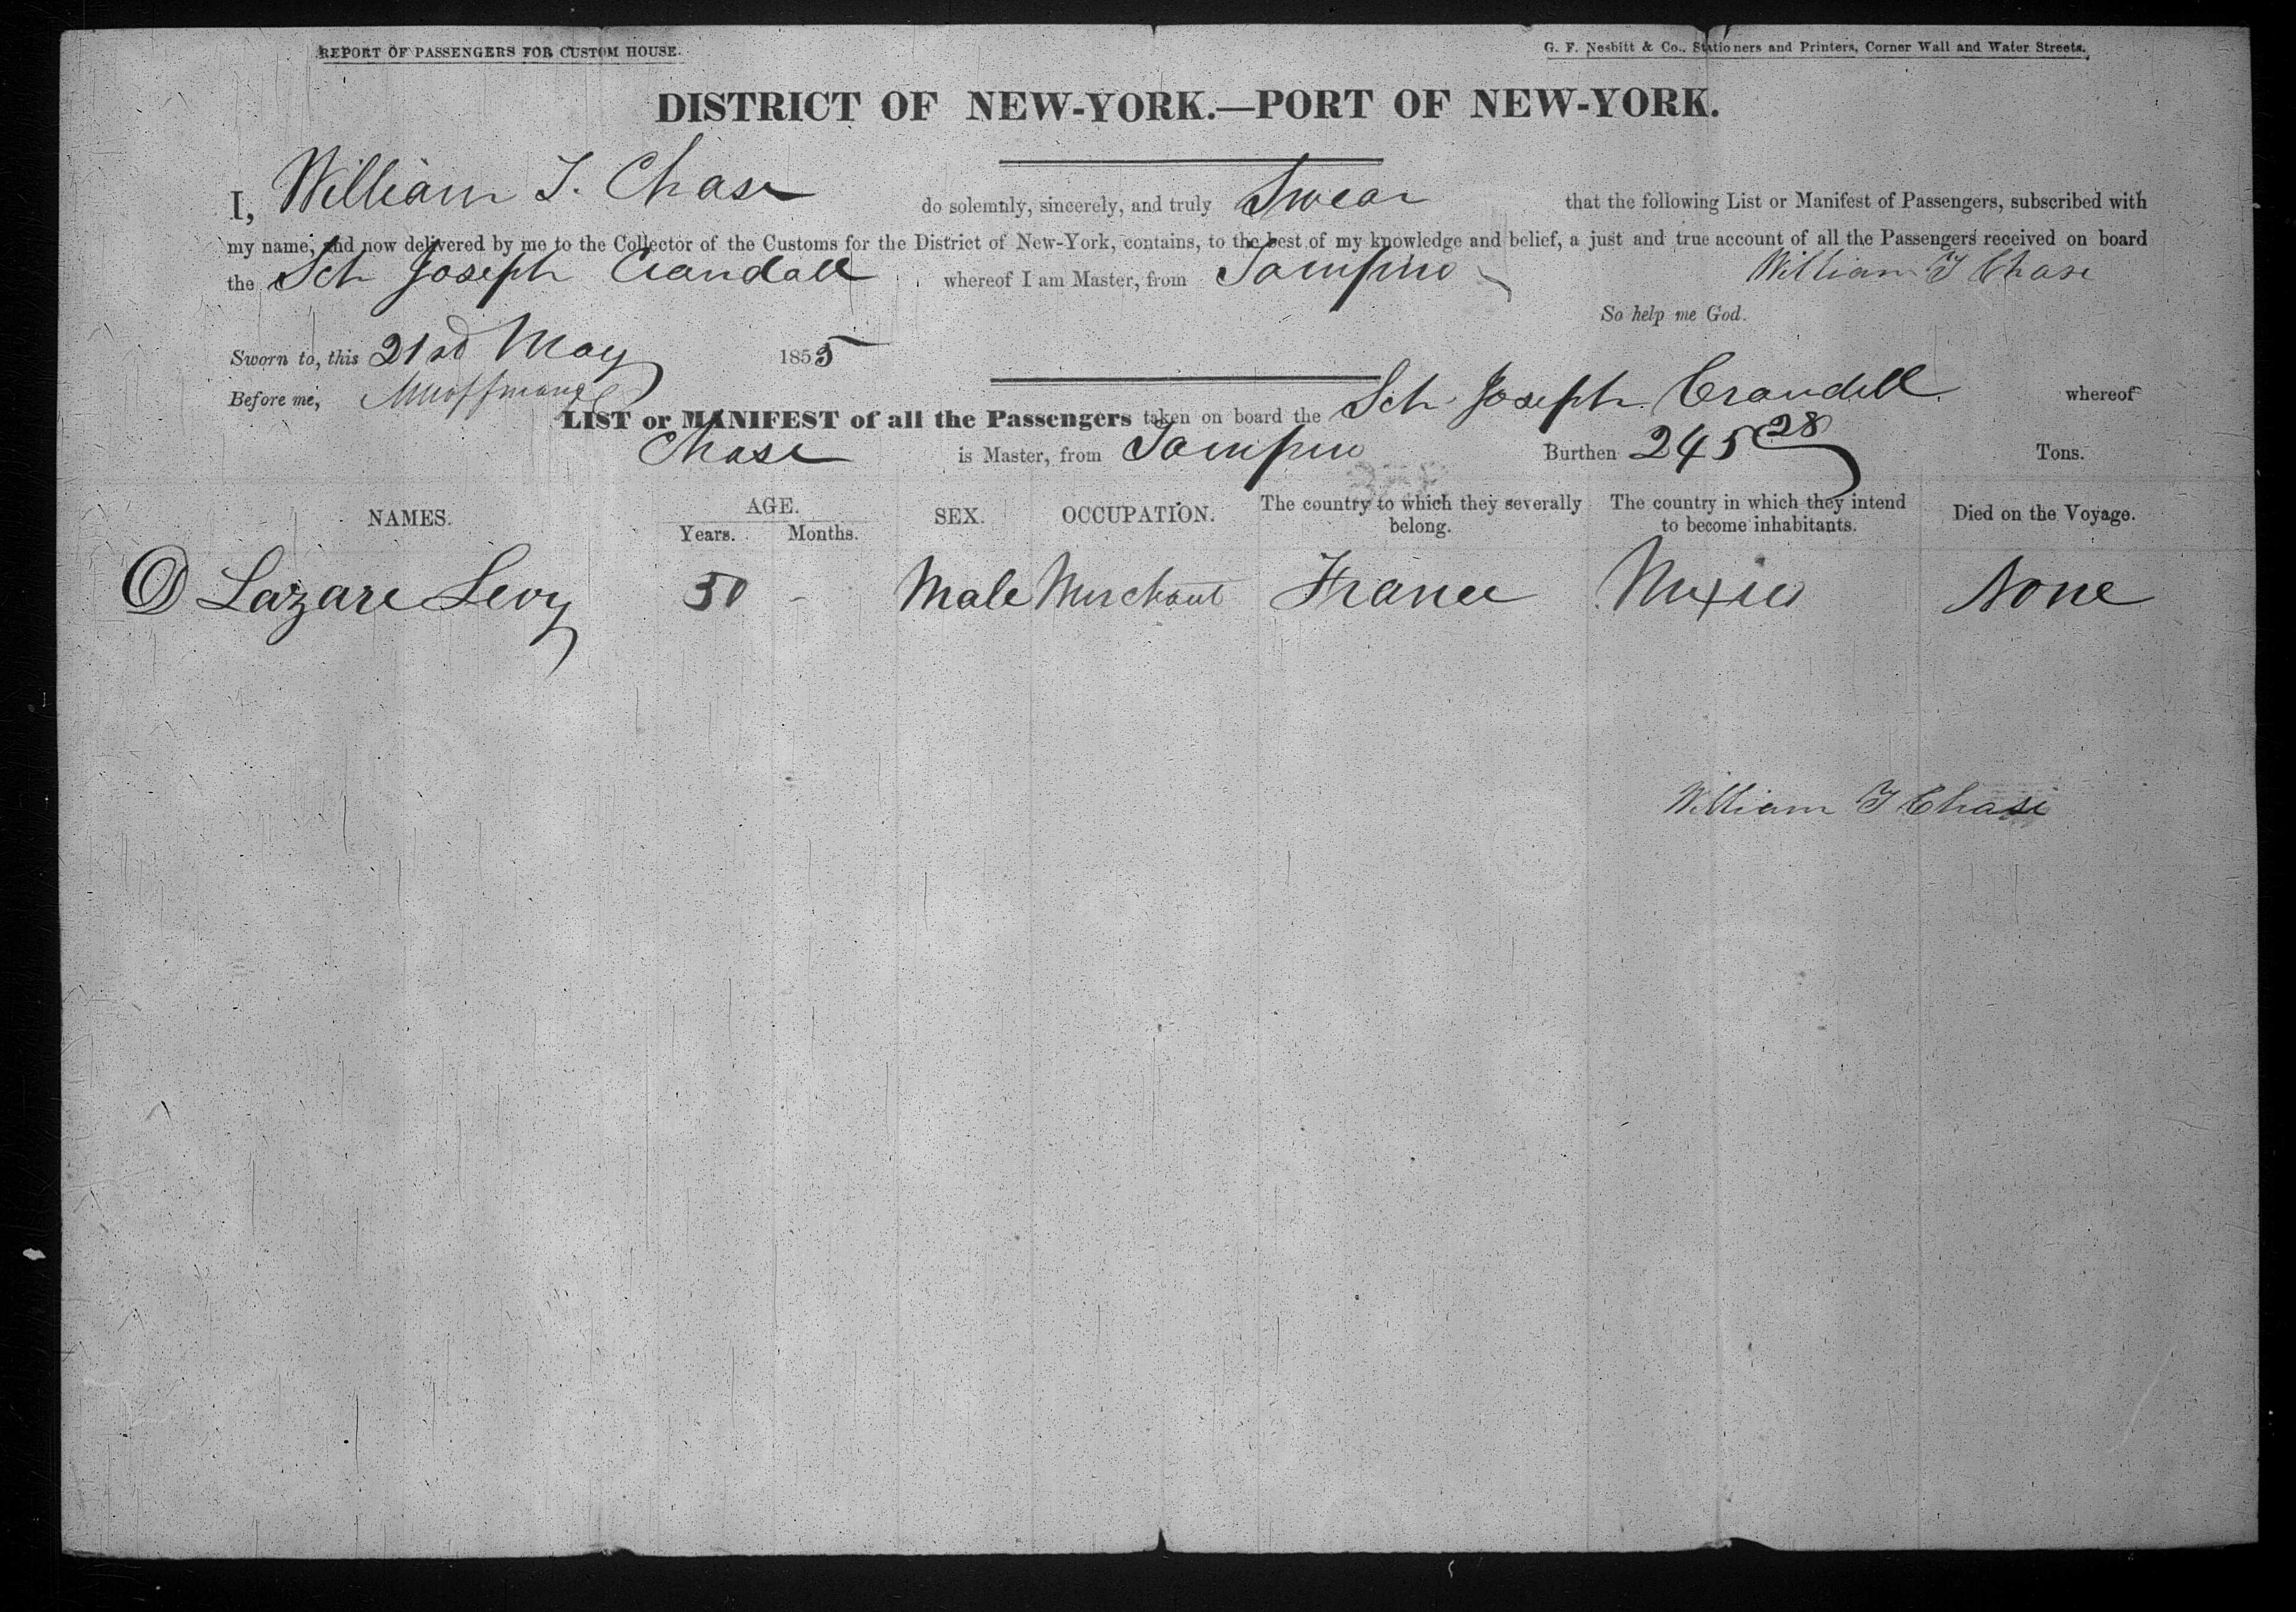 REPORT OF PASSENGERS FOR CUSTOM HOUSE.
G. F. Nesbitt & Co., Stationers and Printers, Corner Wall and Water Streets.
DISTRICT OF NEW-YORK.—PORT OF NEW-YORK.
I, William T. Chase do solemnly, sincerely, and truly Swear that the following List or Manifest of Passengers, subscribed with
my name, and now delivered by me to the Collector of the Customs for the District of New-York, contains, to the best of my knowledge and belief, a just and true account of all the Passengers received on board
the Sch Joseph Crandall whereof I am Master, from Tampico William T Chase
So help me God.
Sworn to, this 21st May 1855
Before me,
LIST or MANIFEST of all the Passengers taken on board the Sch Joseph Crandell whereof
Chase is Master, from Tampico Burthen 245 28 Tons.
NAMES. AGE. Years. Months. SEX. OCCUPATION. The country to which they severally belong. The country in which they intend to become inhabitants. Died on the Voyage.
D Lazare Levy 30 - Male Merchant France Mexico None
William T Chase